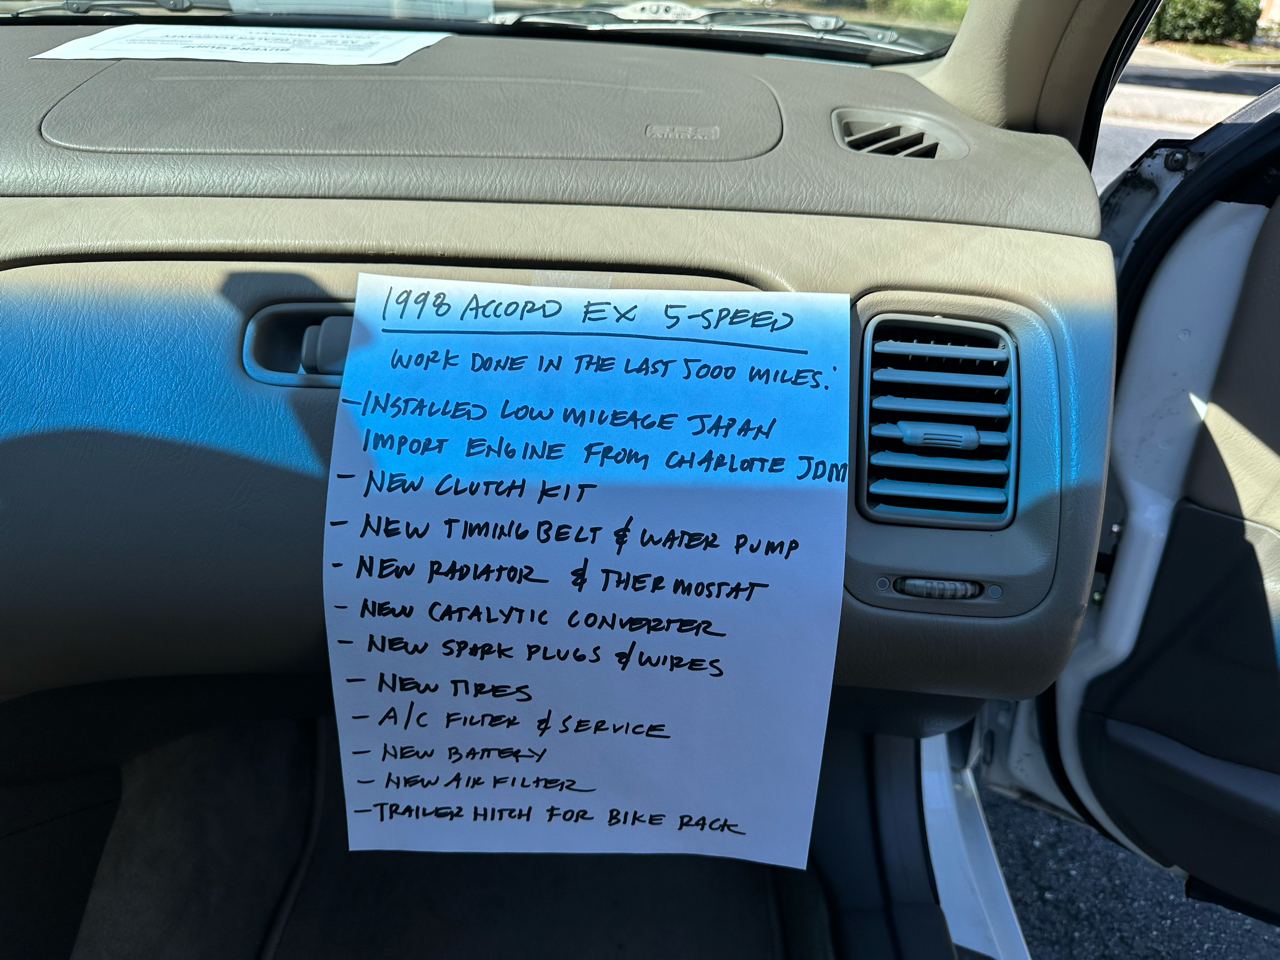 BUYERS GUIDE
1998 ACCORD EX 5-SPEED
WORK DONE IN THE LAST 5000 MILES:
- INSTALLED LOW MILEAGE JAPAN
IMPORT ENGINE FROM CHARLOTTE JDM
- NEW CLUTCH KIT
- NEW TIMING BELT & WATER PUMP
- NEW RADIATOR & THERMOSTAT
- NEW CATALYTIC CONVERTER
- NEW SPARK PLUGS & WIRES
- NEW TIRES
- A/C FILTER & SERVICE
- NEW BATTERY
- NEW AIR FILTER
- TRAILER HITCH FOR BIKE RACK